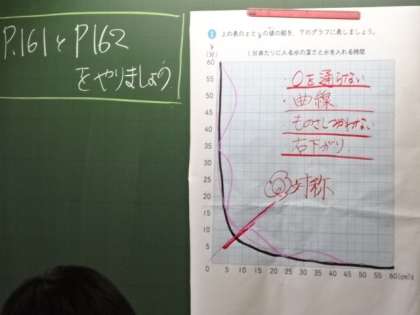 P.161とP162
をやりましょう
上の表のxとyの値の組を、下のグラフに表しましょう。
1分あたりに入る水の深さと水を入れる時間
y
(分)
60
55
50
45
40
35
30
25
20
15
10
5
0
5 10 15 20 25 30 35 40 45 50 55 60 (cm)
x
・0を通らない
・曲線
ものさしつかわない
右下がり
対称